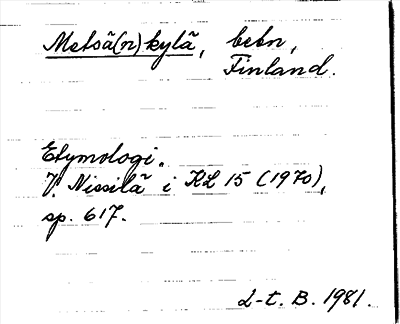 Metsä(n)kylä, bebn,
Finland.
Etymologi.
V. Nissilä i KL 15 (1970),
sp. 617.
L-t. B. 1981.